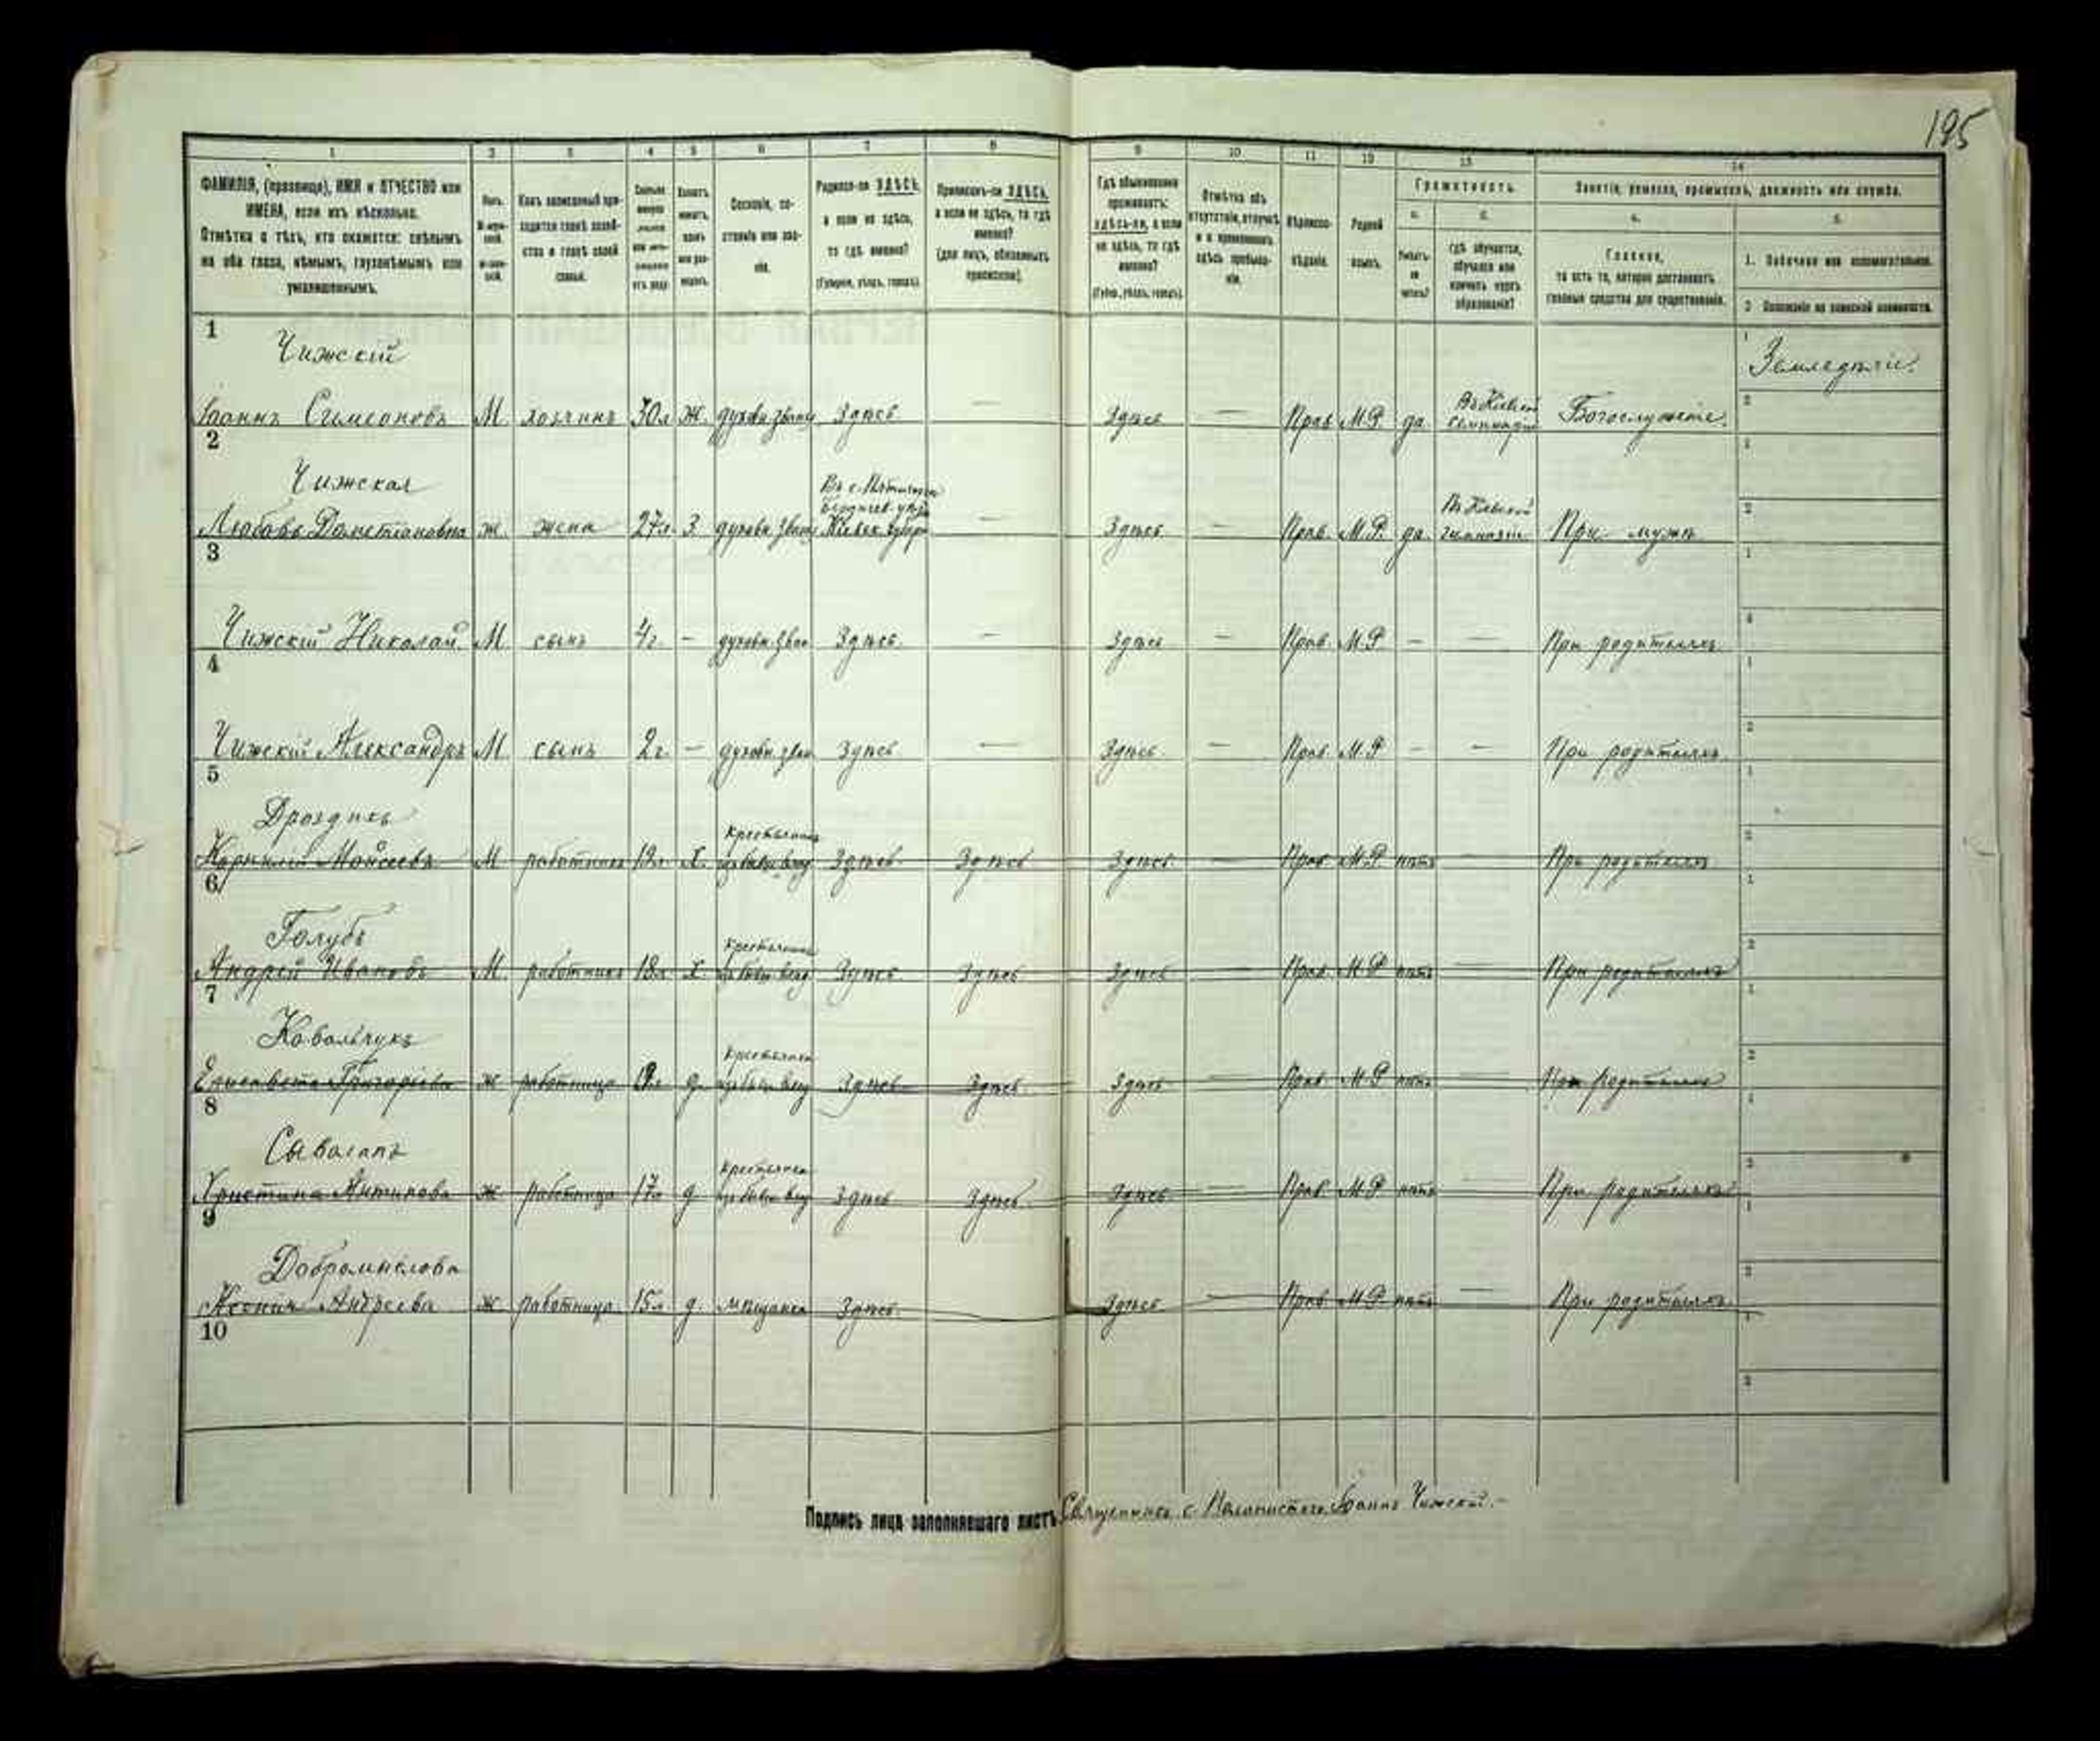 195
1 2 3 4 5 6 7 8 9 10 11 12 13 14
ФАМИЛІЯ, (прозвище), ИМЯ и ОТЧЕСТВО или ИМЕНА, если ихъ нѣсколько.
Отмѣтка о тѣхъ, кто окажется: слѣпымъ на оба глаза, нѣмымъ, глухонѣмымъ или умалишеннымъ.
Сословіе, состояніе или званіе.
Родился-ли ЗДѢСЬ, а если не здѣсь, то гдѣ именно?
(Губернія, уѣздъ, городъ).
Приписанъ-ли ЗДѢСЬ, а если не здѣсь, то гдѣ именно?
(для лицъ, обязанныхъ припискою).
Гдѣ обыкновенно проживаетъ: здѣсь-ли, а если не здѣсь, то гдѣ именно?
(Губер., уѣздъ, городъ).
Отмѣтка объ отсутствіи, отлучкѣ и о временномъ здѣсь пребываніи.
Вѣроисповѣданіе.
Родной языкъ.
Грамотность.
а. Умѣетъ-ли читать?
б. гдѣ обучается, обучался или кончилъ курсъ образованія?
Занятіе, ремесло, промыселъ, должность или служба.
а. Главное, то есть то, которое доставляетъ главныя средства для существованія.
б.
1. Побочное или вспомогательное.
2. Положеніе по воинской повинности.
1
Чижскій
Земледѣліе.
Іоаннъ Симеоновъ М. хозяинъ 30 л. Ж. духовн. званія Здѣсь — Здѣсь Прав. М.Р. да Въ Кіевской семинаріи Богослуженіе.
2
Чижская
Любовь ж. жена 27 л. З. духовн. званія Бердичев. уѣзд. Кіевск. губерн. — Здѣсь Прав. М.Р. да. Въ Кіевской гимназіи При мужѣ
3
Чижскій Николай М. сынъ 4 г. — духовн. зван. Здѣсь. — Здѣсь — Прав. М.Р. — — При родителяхъ
4
Чижскій Александръ М. сынъ 2 г. — духовн. зван. Здѣсь — Здѣсь — Прав. М.Р. — — При родителяхъ
5
Дроздикъ
Корнилій Моѵсеевъ М работникъ 18 л. Х. крестьянинъ Здѣсь Здѣсь Здѣсь — Прав. М.Р. нѣтъ При родителяхъ
6
Голубъ
Андрей Ивановъ М. работникъ 18 л. Х. крестьянинъ Здѣсь Здѣсь Здѣсь — Прав. М.Р нѣтъ — При родителяхъ
7
Ковальчукъ
Елисавета Григоріева ж работница д. крестьянка Здѣсь Здѣсь Здѣсь — Прав М.Р нѣтъ — При родителяхъ
8
Христина Антипова ж работница 17 л. д. крестьянка Здѣсь Здѣсь Здѣсь — Прав. М.Р нѣтъ — При родителяхъ
9
Добромыслова
Ксенія Андреева ж работница 15 л. д. мѣщанка Здѣсь Здѣсь — Прав. М.Р. нѣтъ — При родителяхъ
10
Подпись лица заполнявшаго листъ Священникъ с. Іоаннъ Чижскій.